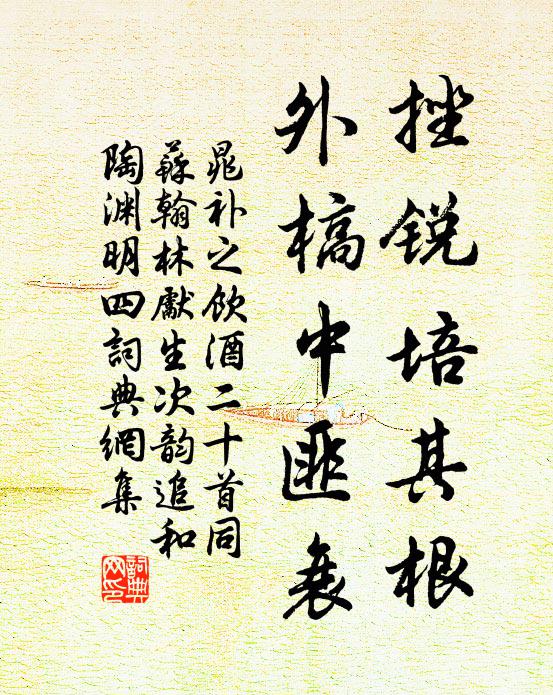 挫锐培其根
外槁中匪衰
晁补之饮酒二十首同
蘇翰林獻生次韵追和
陶渊明四詞典網集
詞典网印